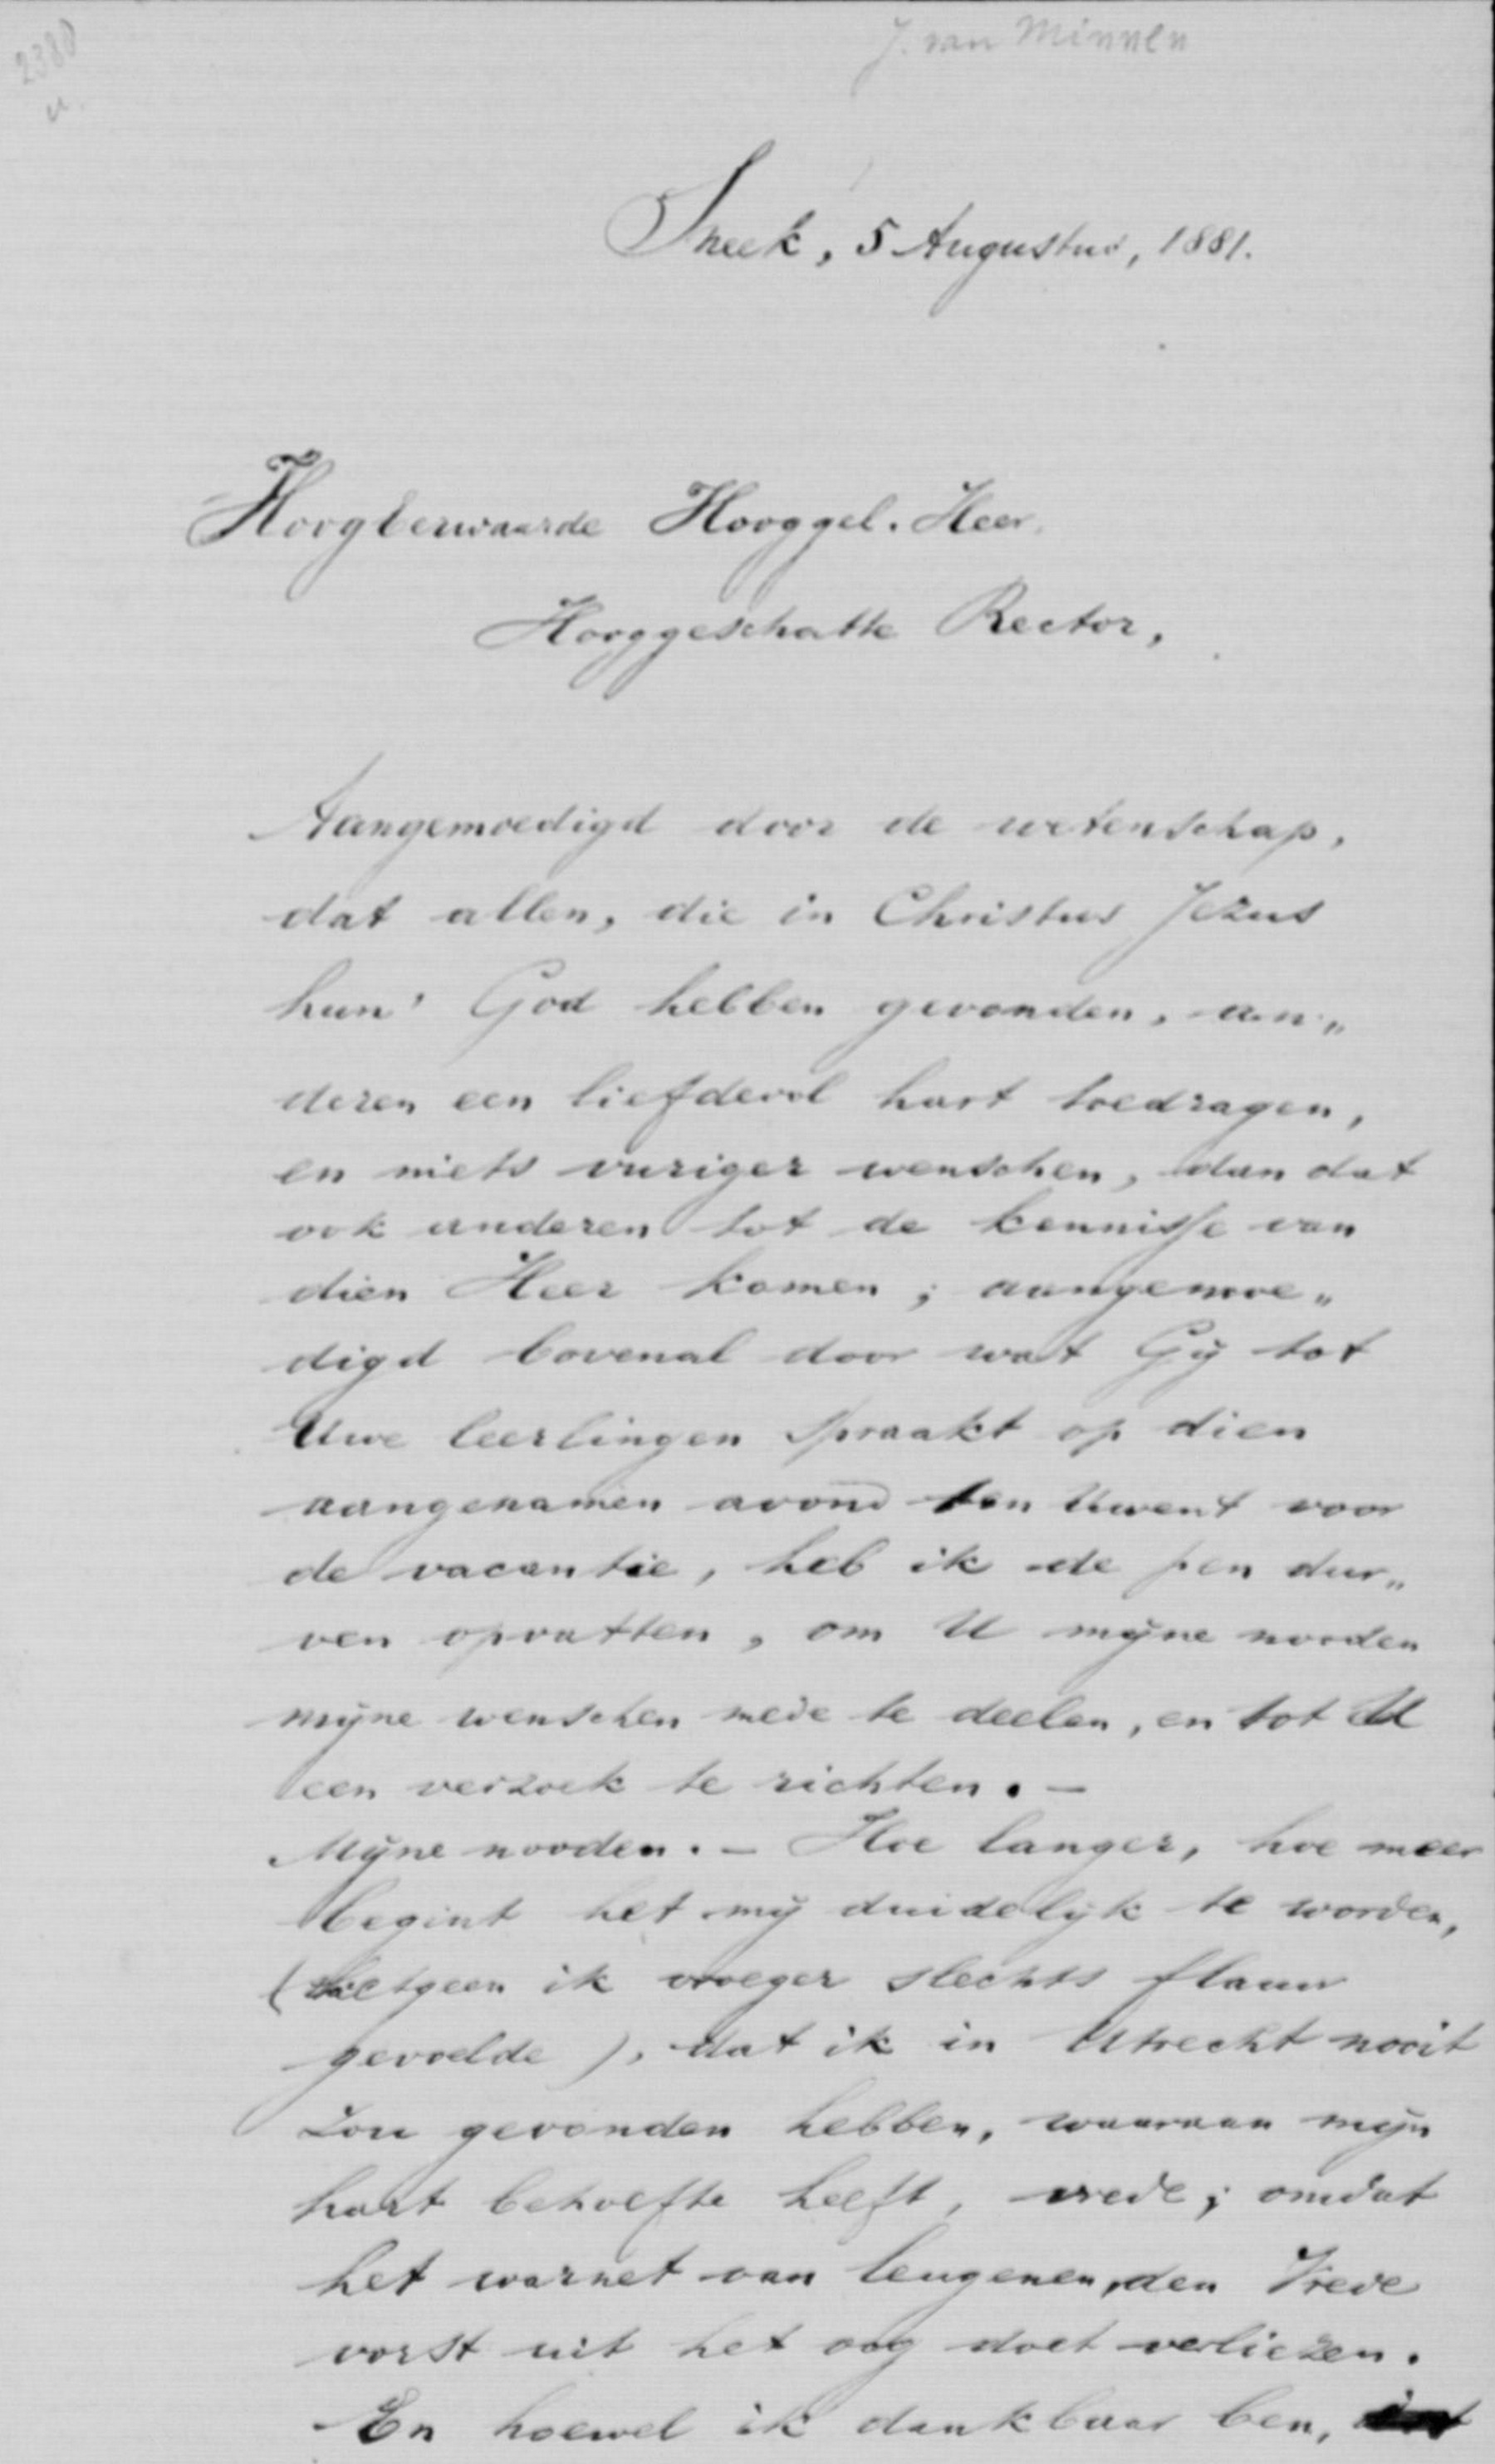 2380
J. van Minnen
Sneek, 5 Augustus, 1881.
Hoogeerwaarde Hooggel. Heer.
Hooggeschatte Rector,
Aangemoedigd door de wetenschap,
dat allen, die in Christus Jezus
hun' God hebben gevonden, an„
deren een liefdevol hart toedragen,
en niets vuriger wenschen, dan dat
ook anderen tot de kennisse van
dien Heer komen; aangemoe„
digd bovenal door wat Gij tot
Uwe leerlingen spraakt op dien
aangenamen avond ten Uwent voor
de vacantie, heb ik de pen dur„
ven opvatten, om U mijne nooden
mijne wenschen mede te deelen, en tot U
een verzoek te richten. –
Mijne nooden. – Hoe langer, hoe meer
begint het mij duidelijk te worden,
(hetgeen ik vroeger slechts flauw
gevoelde), dat ik in Utrecht nooit
zou gevonden hebben, waaraan mijn
hart behoefte heeft, vrede; omdat
het warnet van leugenen, den Vrede
vorst uit het oog doet verliezen.
En hoewel ik dankbaar ben,